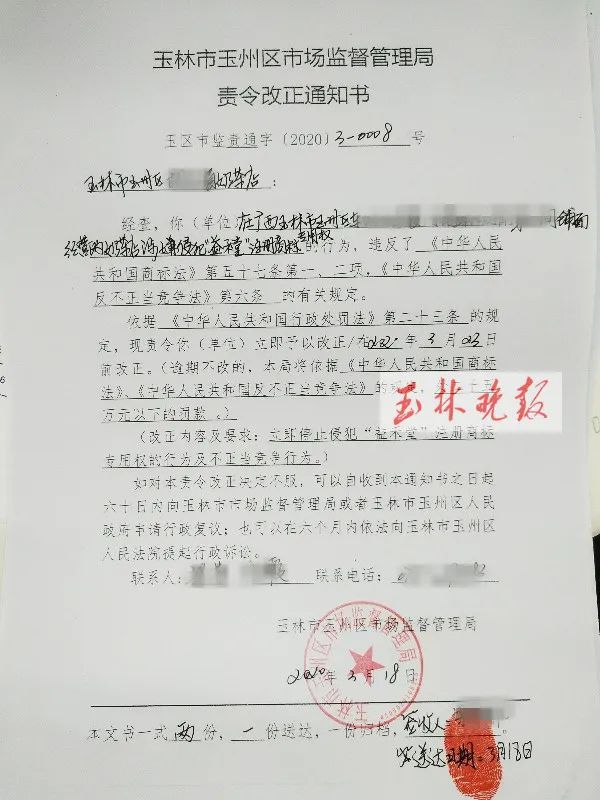 玉林市玉州区市场监督管理局
责令改正通知书
玉区市监责通字〔2020〕3-0008 号
玉林市玉州区 奶茶店：
经查，你（单位）在广西玉林市玉州区 铺面
经营的奶茶店涉嫌侵犯“益禾堂”注册商标专用权的行为，违反了《中华人民
共和国商标法》第五十七条第一、二项，《中华人民共和国
反不正当竞争法》第六条 的有关规定。
依据《中华人民共和国行政处罚法》第二十三条的规
定，现责令你（单位）立即予以改正/在2020年3月23日
前改正。（逾期不改的，本局将依据《中华人民共和国商标
法》、《中华人民共和国反不正当竞争法》的规定，
万元以下的罚款。）
玉林晚报
（改正内容及要求：立即停止侵犯“益禾堂”注册商标
专用权的行为及不正当竞争行为。）
如对本责令改正决定不服，可以自收到本通知书之日起
六十日内向玉林市市场监督管理局或者玉林市玉州区人民
政府申请行政复议；也可以在六个月内依法向玉林市玉州区
人民法院提起行政诉讼。
联系人： 联系电话：
玉林市玉州区市场监督管理局
玉林市玉州区市场监督管理局
2020年3月18日
本文书一式两份，一份送达，一份归档，签收人：
送达日期：3月18日